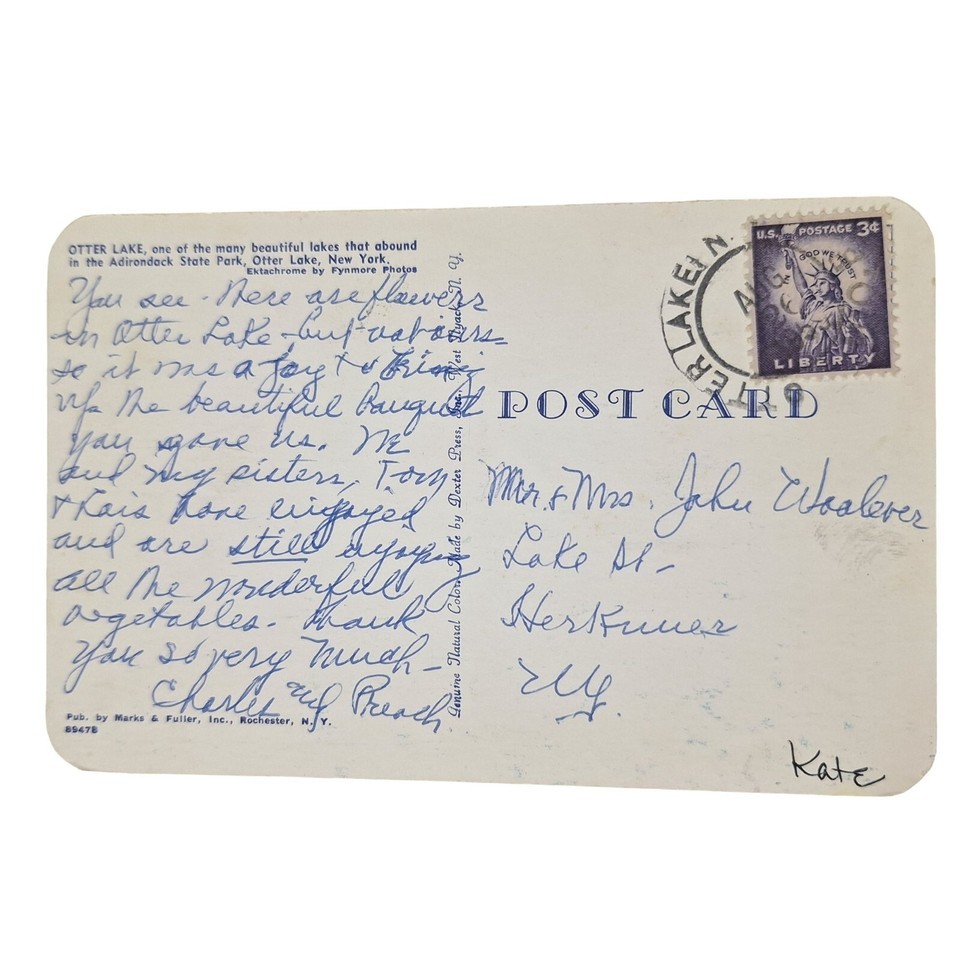 OTTER LAKE, one of the many beautiful lakes that abound
in the Adirondack State Park, Otter Lake, New York.
Ektachrome by Fynmore Photos
You see - there are flowers
in Otter Lake - but not ours -
so it was a joy to bring
up the beautiful bouquet
you gave us. We
and my sisters, Tom
& Lois have enjoyed
and are still enjoying
all the wonderful
vegetables. Thank
you so very much -
Charles and
Pub. by Marks & Fuller, Inc., Rochester, N. Y.
89478
Genuine Natural Color Made by Dexter Press, Inc. West Nyack, N. Y.
POST CARD
OTTER LAKE N.
AUG
U.S. POSTAGE 3¢
IN GOD WE TRUST
LIBERTY
Mr. & Mrs. John Woolever
Lake St -
Herkimer
NY.
Kate